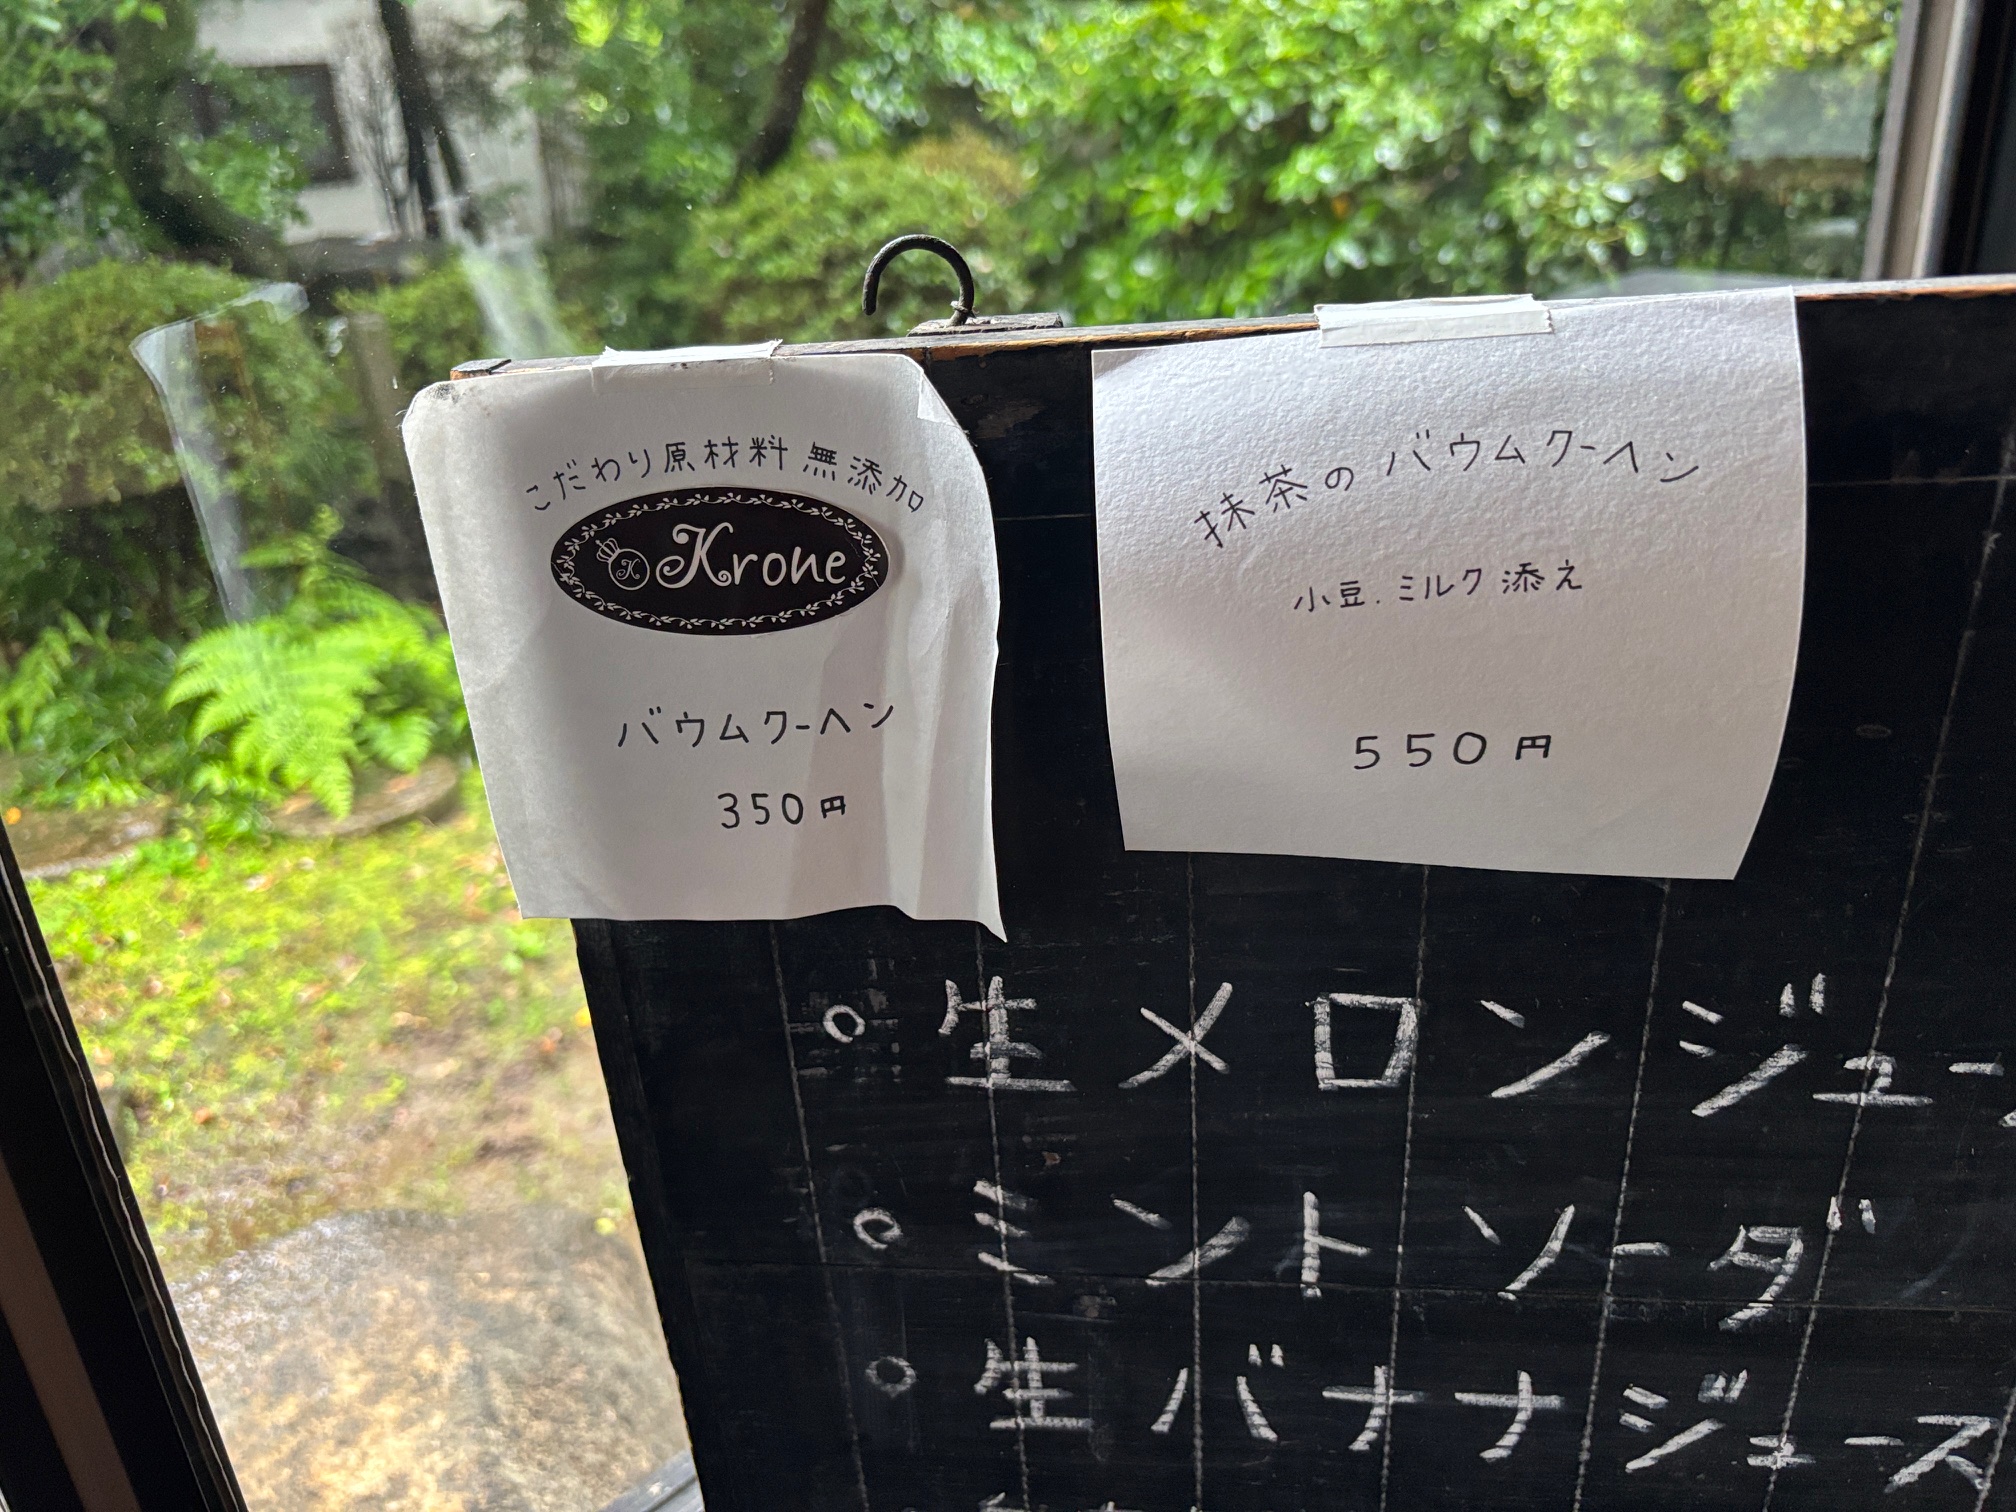 こだわり原材料 無添加
K Krone
バウムクーヘン
350円
抹茶の バウムクーヘン
小豆.ミルク添え
550円
○生メロンジュー
○ミントソーダ
○生バナナジュース